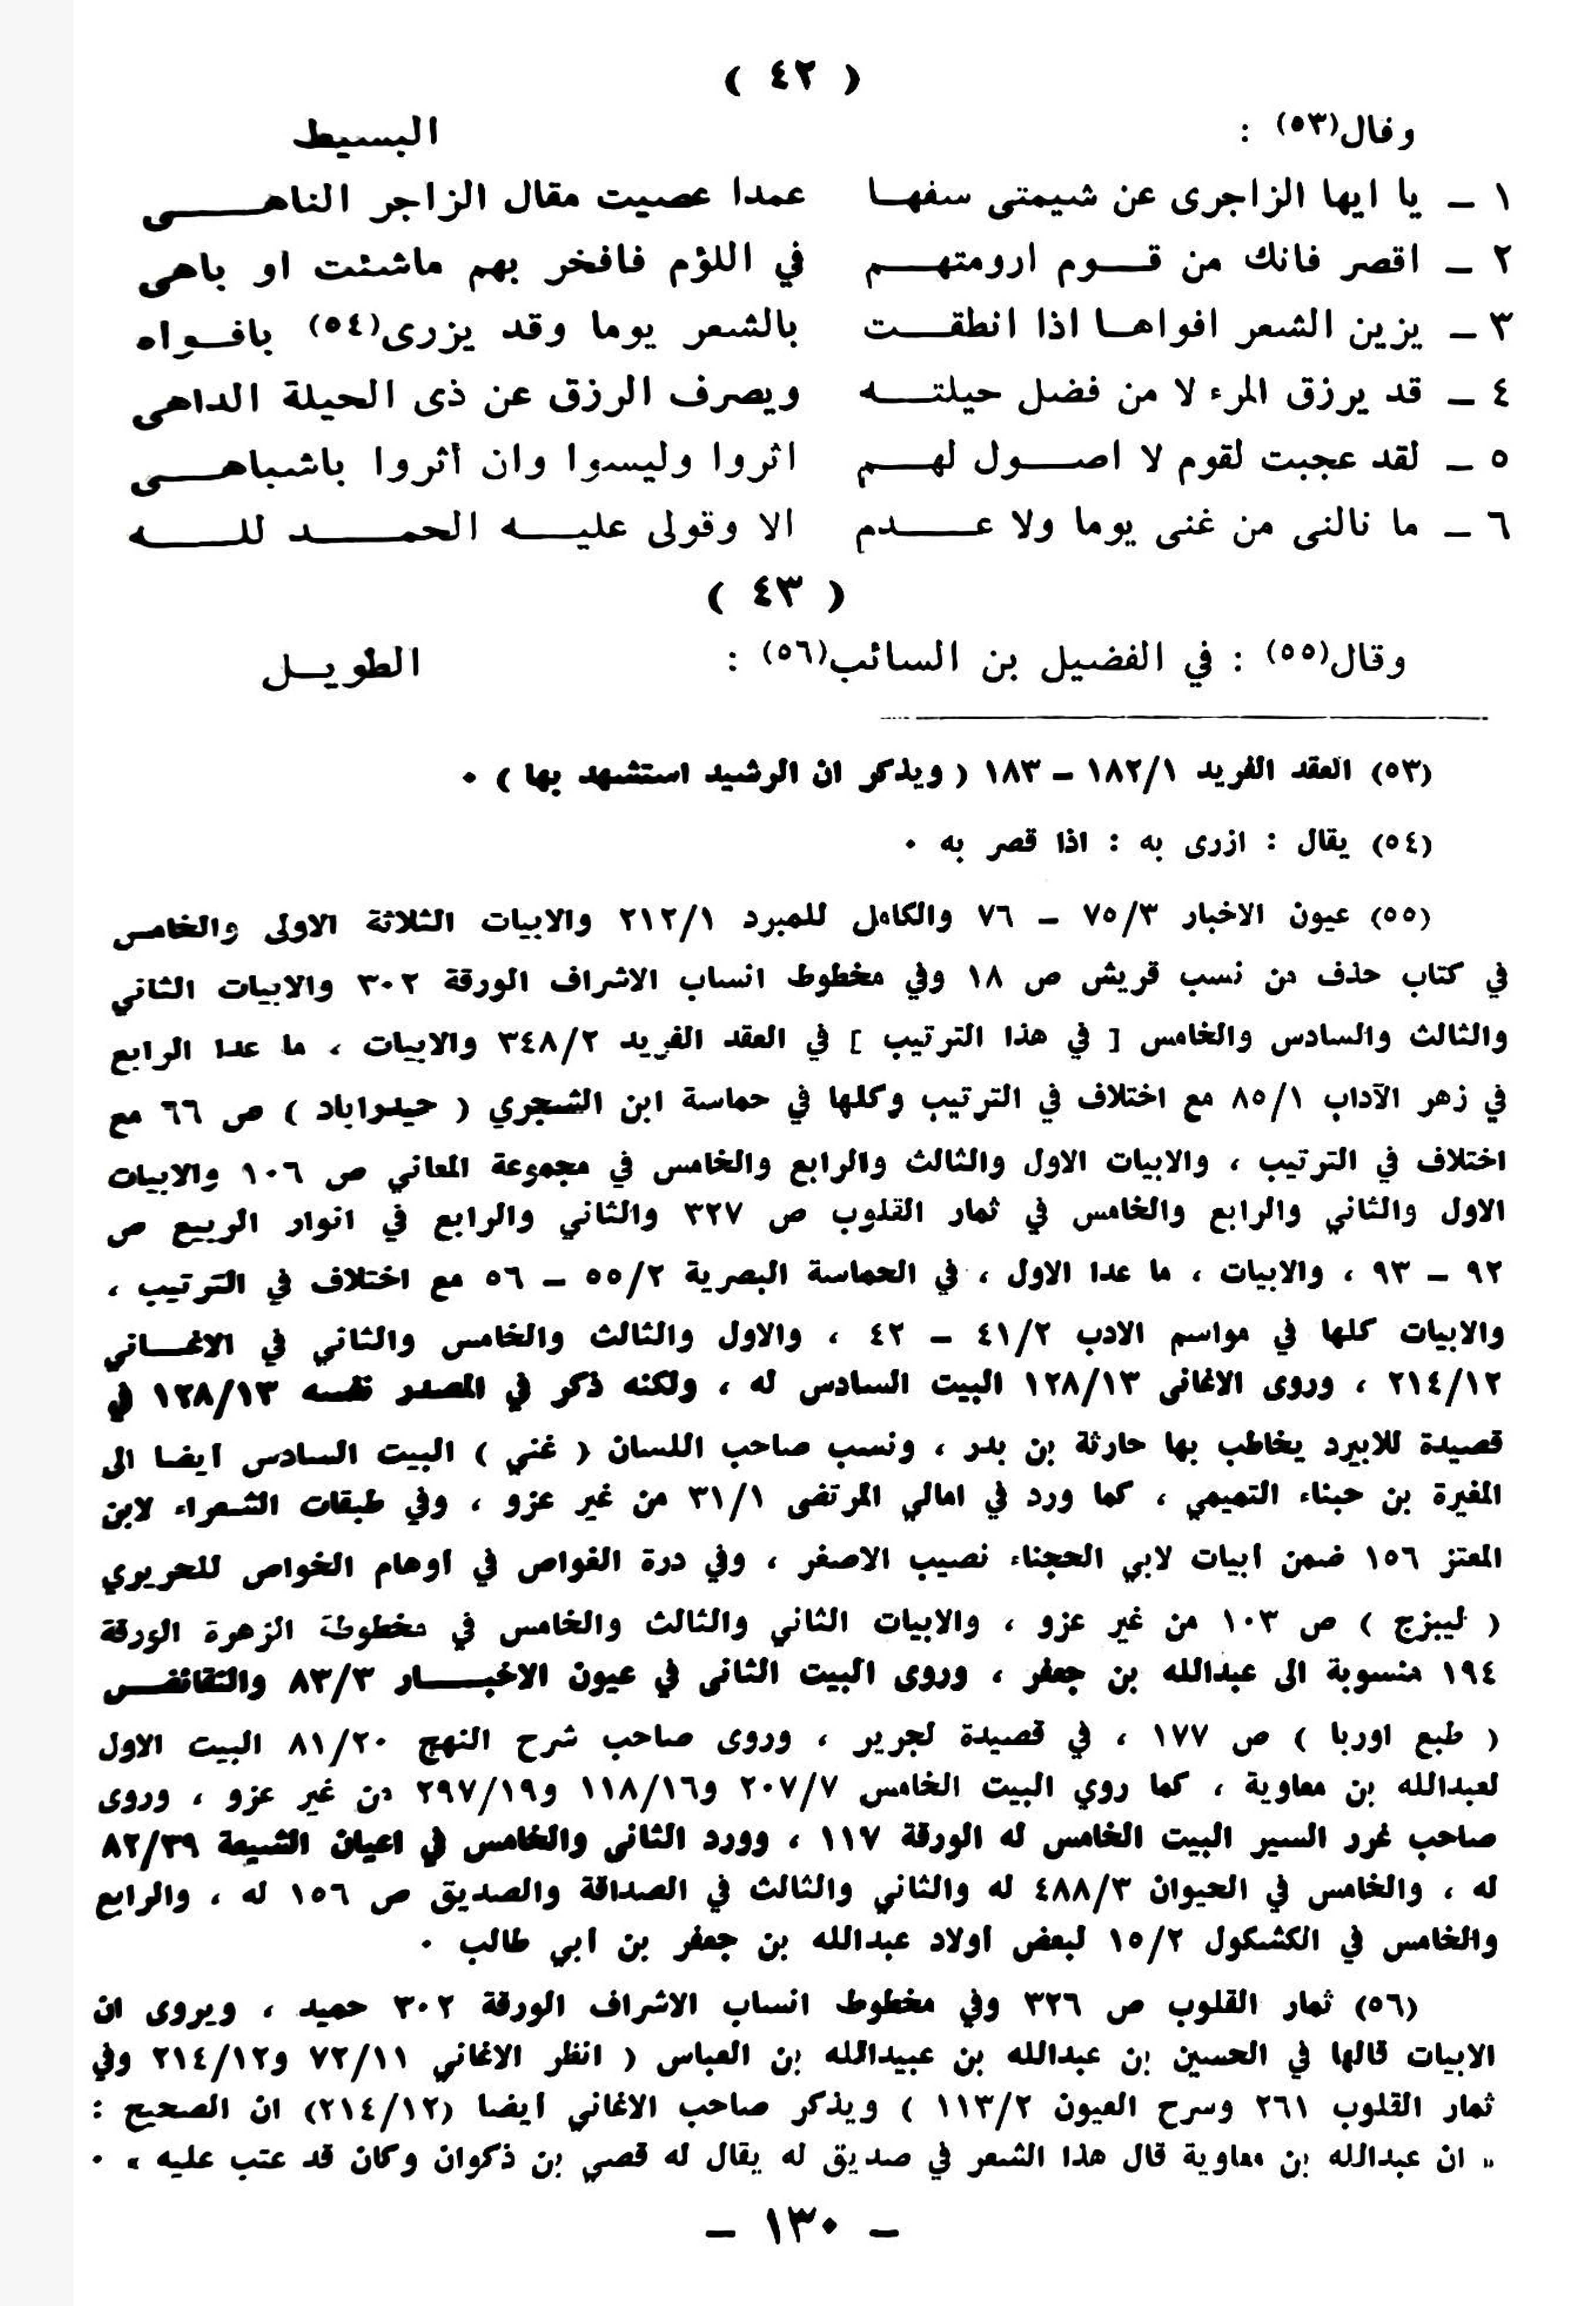 ( ٤٢ )
وقال(٥٣) : البسيط
١ ـ يا ايها الزاجرى عن شيمتى سفهـا عمدا عصيت مقال الزاجر الناهـــى
٢ ـ اقصر فانك من قــوم ارومتهــم في اللؤم فافخر بهم ماشئت او باهى
٣ ـ يزين الشعر افواهـا اذا انطقــت بالشعر يوما وقد يزرى(٥٤) بافـواه
٤ ـ قد يرزق المرء لا من فضل حيلتــه ويصرف الرزق عن ذى الحيلة الداهى
٥ ـ لقد عجبت لقوم لا اصــول لهــم اثروا وليسوا وان أثروا باشباهــى
٦ ـ ما نالنى من غنى يوما ولا عــــدم الا وقولى عليــه الحمــــد للــــه
( ٤٣ )
وقال(٥٥) : في الفضيل بن السائب(٥٦) : الطويــل
(٥٣) العقد الفريد ١/١٨٢ ـ ١٨٣ ( ويذكر ان الرشيد استشهد بها ) ٠
(٥٤) يقال : ازرى به : اذا قصر به ٠
(٥٥) عيون الاخبار ٣/٧٥ ـ ٧٦ والكامل للمبرد ١/٢١٢ والابيات الثلاثة الاولى والخامس
في كتاب حذف من نسب قريش ص ١٨ وفي مخطوط انساب الاشراف الورقة ٣٠٢ والابيات الثاني
والثالث والسادس والخامس [ في هذا الترتيب ] في العقد الفريد ٢/٣٤٨ والابيات ، ما عدا الرابع
في زهر الآداب ١/٨٥ مع اختلاف في الترتيب وكلها في حماسة ابن الشجري ( حيدراباد ) ص ٦٦ مع
اختلاف في الترتيب ، والابيات الاول والثالث والرابع والخامس في مجموعة المعاني ص ١٠٦ والابيات
الاول والثاني والرابع والخامس في ثمار القلوب ص ٣٢٧ والثاني والرابع في انوار الربيع ص
٩٢ ـ ٩٣ ، والابيات ، ما عدا الاول ، في الحماسة البصرية ٢/٥٥ ـ ٥٦ مع اختلاف في الترتيب ،
والابيات كلها في مواسم الادب ٢/٤١ ـ ٤٢ ، والاول والثالث والخامس والثاني في الاغـــاني
٢١٤/١٢ ، وروى الاغانى ١٢٨/١٣ البيت السادس له ، ولكنه ذكر في المصدر نفسه ١٢٨/١٣ في
قصيدة للابيرد يخاطب بها حارثة بن بدر ، ونسب صاحب اللسان ( غني ) البيت السادس ايضا الى
المغيرة بن حبناء التميمي ، كما ورد في امالي المرتضى ٣١/١ من غير عزو ، وفي طبقات الشعراء لابن
المعتز ١٥٦ ضمن ابيات لابي الحجناء نصيب الاصغر ، وفي درة الغواص في اوهام الخواص للحريري
( ليبزج ) ص ١٠٣ من غير عزو ، والابيات الثاني والثالث والخامس في مخطوطة الزهرة الورقة
١٩٤ منسوبة الى عبدالله بن جعفر ، وروى البيت الثانى في عيون الاخبــــار ٨٣/٣ والنقائض
( طبع اوربا ) ص ١٧٧ ، في قصيدة لجرير ، وروى صاحب شرح النهج ٨١/٢٠ البيت الاول
لعبدالله بن معاوية ، كما روي البيت الخامس ٢٠٧/٧ و١١٨/١٦ و٢٩٧/١٩ من غير عزو ، وروى
صاحب غرر السير البيت الخامس له الورقة ١١٧ ، وورد الثانى والخامس في اعيان الشيعة ٨٢/٣٩
له ، والخامس في الحيوان ٤٨٨/٣ له والثاني والثالث في الصداقة والصديق ص ١٥٦ له ، والرابع
والخامس في الكشكول ١٥/٢ لبعض اولاد عبدالله بن جعفر بن ابي طالب ٠
(٥٦) ثمار القلوب ص ٣٢٦ وفي مخطوط انساب الاشراف الورقة ٣٠٢ حميد ، ويروى ان
الابيات قالها في الحسين بن عبدالله بن عبيدالله بن العباس ( انظر الاغاني ٧٢/١١ و٢١٤/١٢ وفي
ثمار القلوب ٢٦١ وسرح العيون ١١٣/٢ ) ويذكر صاحب الاغاني ايضا (٢١٤/١٢) ان الصحيح :
« ان عبدالله بن معاوية قال هذا الشعر في صديق له يقال له قصي بن ذكوان وكان قد عتب عليه » ٠
ـ ١٣٠ ـ